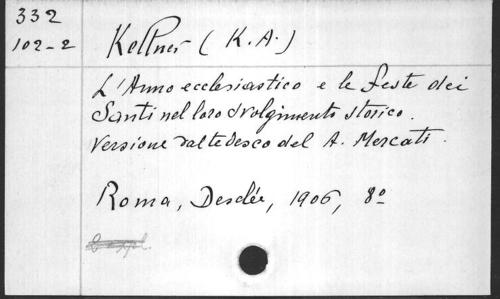 332
102-2
Kellner (K.A.)
L'Anno ecclesiastico e le feste dei
Santi nel loro svolgimento storico.
Versione dal tedesco del A. Mercati.
Roma, Desclée, 1906, 8º